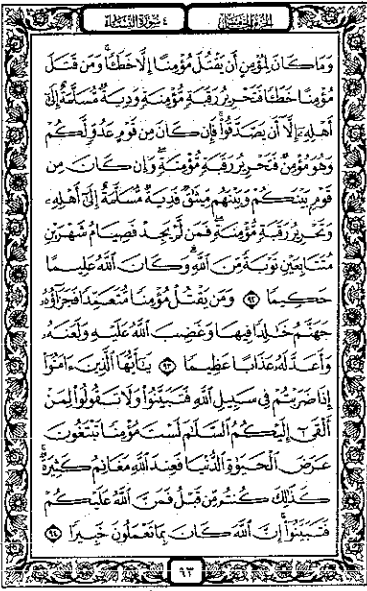 الجزء الخامس
٤ سورة النساء
وَمَا كَانَ لِمُؤْمِنٍ أَن يَقْتُلَ مُؤْمِنًا إِلَّا خَطَـًٔا وَمَن قَتَلَ
مُؤْمِنًا خَطَـًٔا فَتَحْرِيرُ رَقَبَةٍ مُّؤْمِنَةٍ وَدِيَةٌ مُّسَلَّمَةٌ إِلَىٰٓ
أَهْلِهِۦٓ إِلَّآ أَن يَصَّدَّقُوا۟ فَإِن كَانَ مِن قَوْمٍ عَدُوٍّ لَّكُمْ
وَهُوَ مُؤْمِنٌ فَتَحْرِيرُ رَقَبَةٍ مُّؤْمِنَةٍ وَإِن كَانَ مِن
قَوْمٍۭ بَيْنَكُمْ وَبَيْنَهُم مِّيثَـٰقٌ فَدِيَةٌ مُّسَلَّمَةٌ إِلَىٰٓ أَهْلِهِۦ
وَتَحْرِيرُ رَقَبَةٍ مُّؤْمِنَةٍ فَمَن لَّمْ يَجِدْ فَصِيَامُ شَهْرَيْنِ
مُتَتَابِعَيْنِ تَوْبَةً مِّنَ ٱللَّهِ وَكَانَ ٱللَّهُ عَلِيمًا
حَكِيمًا ٩٢ وَمَن يَقْتُلْ مُؤْمِنًا مُّتَعَمِّدًا فَجَزَآؤُهُۥ
جَهَنَّمُ خَـٰلِدًا فِيهَا وَغَضِبَ ٱللَّهُ عَلَيْهِ وَلَعَنَهُۥ
وَأَعَدَّ لَهُۥ عَذَابًا عَظِيمًا ٩٣ يَـٰٓأَيُّهَا ٱلَّذِينَ ءَامَنُوٓا۟
إِذَا ضَرَبْتُمْ فِى سَبِيلِ ٱللَّهِ فَتَبَيَّنُوا۟ وَلَا تَقُولُوا۟ لِمَنْ
أَلْقَىٰٓ إِلَيْكُمُ ٱلسَّلَـٰمَ لَسْتَ مُؤْمِنًا تَبْتَغُونَ
عَرَضَ ٱلْحَيَوٰةِ ٱلدُّنْيَا فَعِندَ ٱللَّهِ مَغَانِمُ كَثِيرَةٌ
كَذَٰلِكَ كُنتُم مِّن قَبْلُ فَمَنَّ ٱللَّهُ عَلَيْكُمْ
فَتَبَيَّنُوٓا۟ إِنَّ ٱللَّهَ كَانَ بِمَا تَعْمَلُونَ خَبِيرًا ٩٤
٦٣